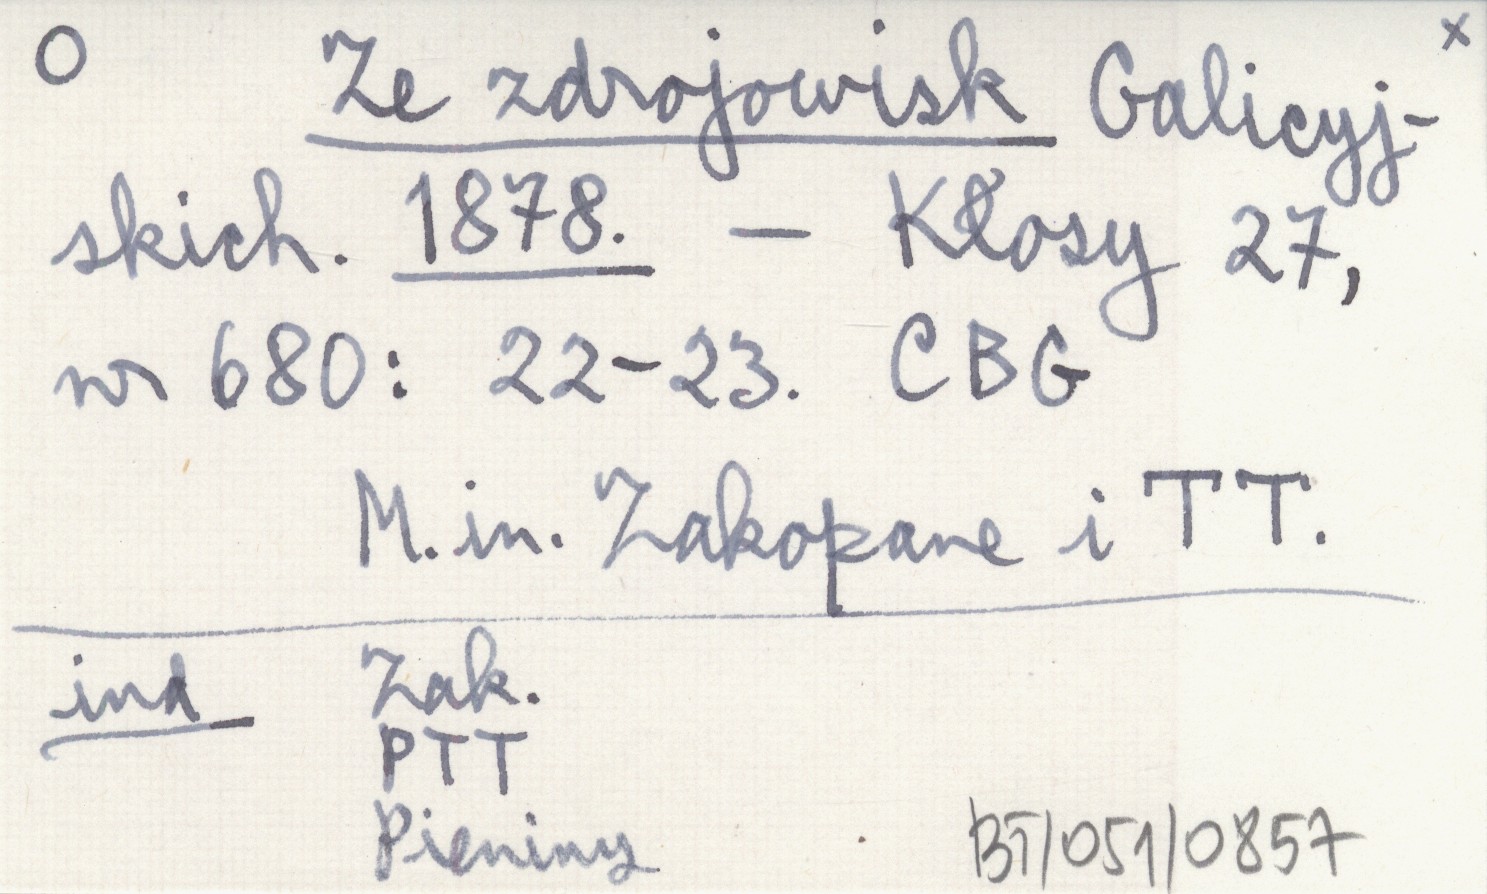 O Ze zdrojowisk Galicyj- x
skich. 1878. – Kłosy 27,
nr 680: 22-23. CBG
M.in. Zakopane i TT.
ind Zak.
PTT
Pieniny
BT/051/0857